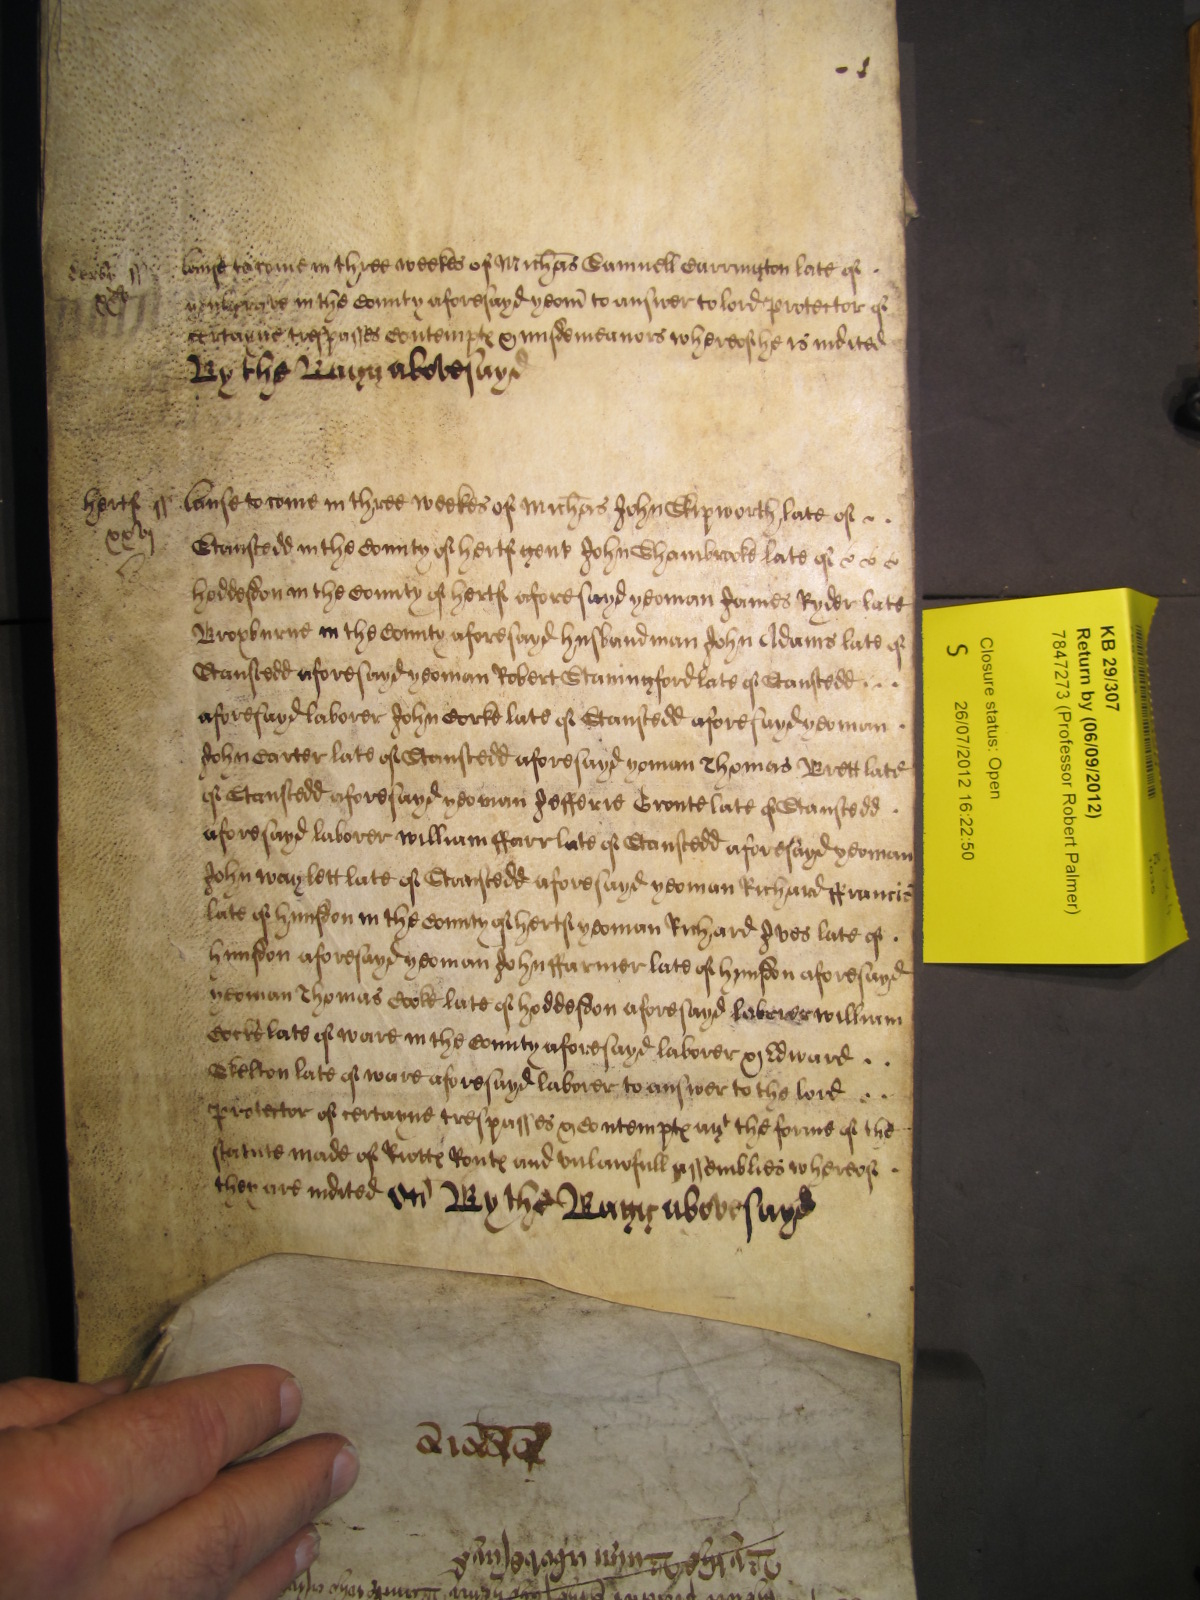 derby ss
xxv
Cause to come in three weekes of Michas Samuell Carrington late of
in the County aforesayd yeom to answer to lord protector of
certayne trespasses Contemptes & misdemeanors whereof he is indited
By the Baigg abovesayd
hertf ss
xxvj
Cause to come in three weekes of Michas John Skipworth late of
Stanstedd in the County of hertf gent John Shambrooke late of
hoddesdon in the County of hertf aforesayd yeoman James Ryder late
Broxburne in the County aforesayd husbandman John Adams late of
Stanstedd aforesayd yeoman Robert Staningford late of Stanstedd
aforesayd laborer John Corke late of Stanstedd aforesayd yeoman
John Carter late of Stanstedd aforesayd yoman Thomas Brett late
of Stanstedd aforesayd yeoman Jefferie Groute late of Stanstedd
aforesayd laborer william ffarr late of Stanstedd aforesayd yeoman
John waylett late of Stanstedd aforesayd yeoman Richard ffrancis
late of hunsdon in the County of hertf yeoman Richard Ives late of
hunsdon aforesayd yeoman John ffarmer late of hunsdon aforesayd
yeoman Thomas Cooke late of hoddesdon aforesayd laborer william
Cocke late of ware in the County aforesayd laborer & Edward
Skelton late of ware aforesayd laborer to answer to the lord
protector of certayne trespasses & Contemptes agt the forme of the
statute made of Riottes Routes and unlawfull assemblies whereof
they are indited By the Bagg abovesayd
KB 29/307
Return by (06/09/2012)
7847273 (Professor Robert Palmer)
Closure status: Open
S 26/07/2012 16:22:50